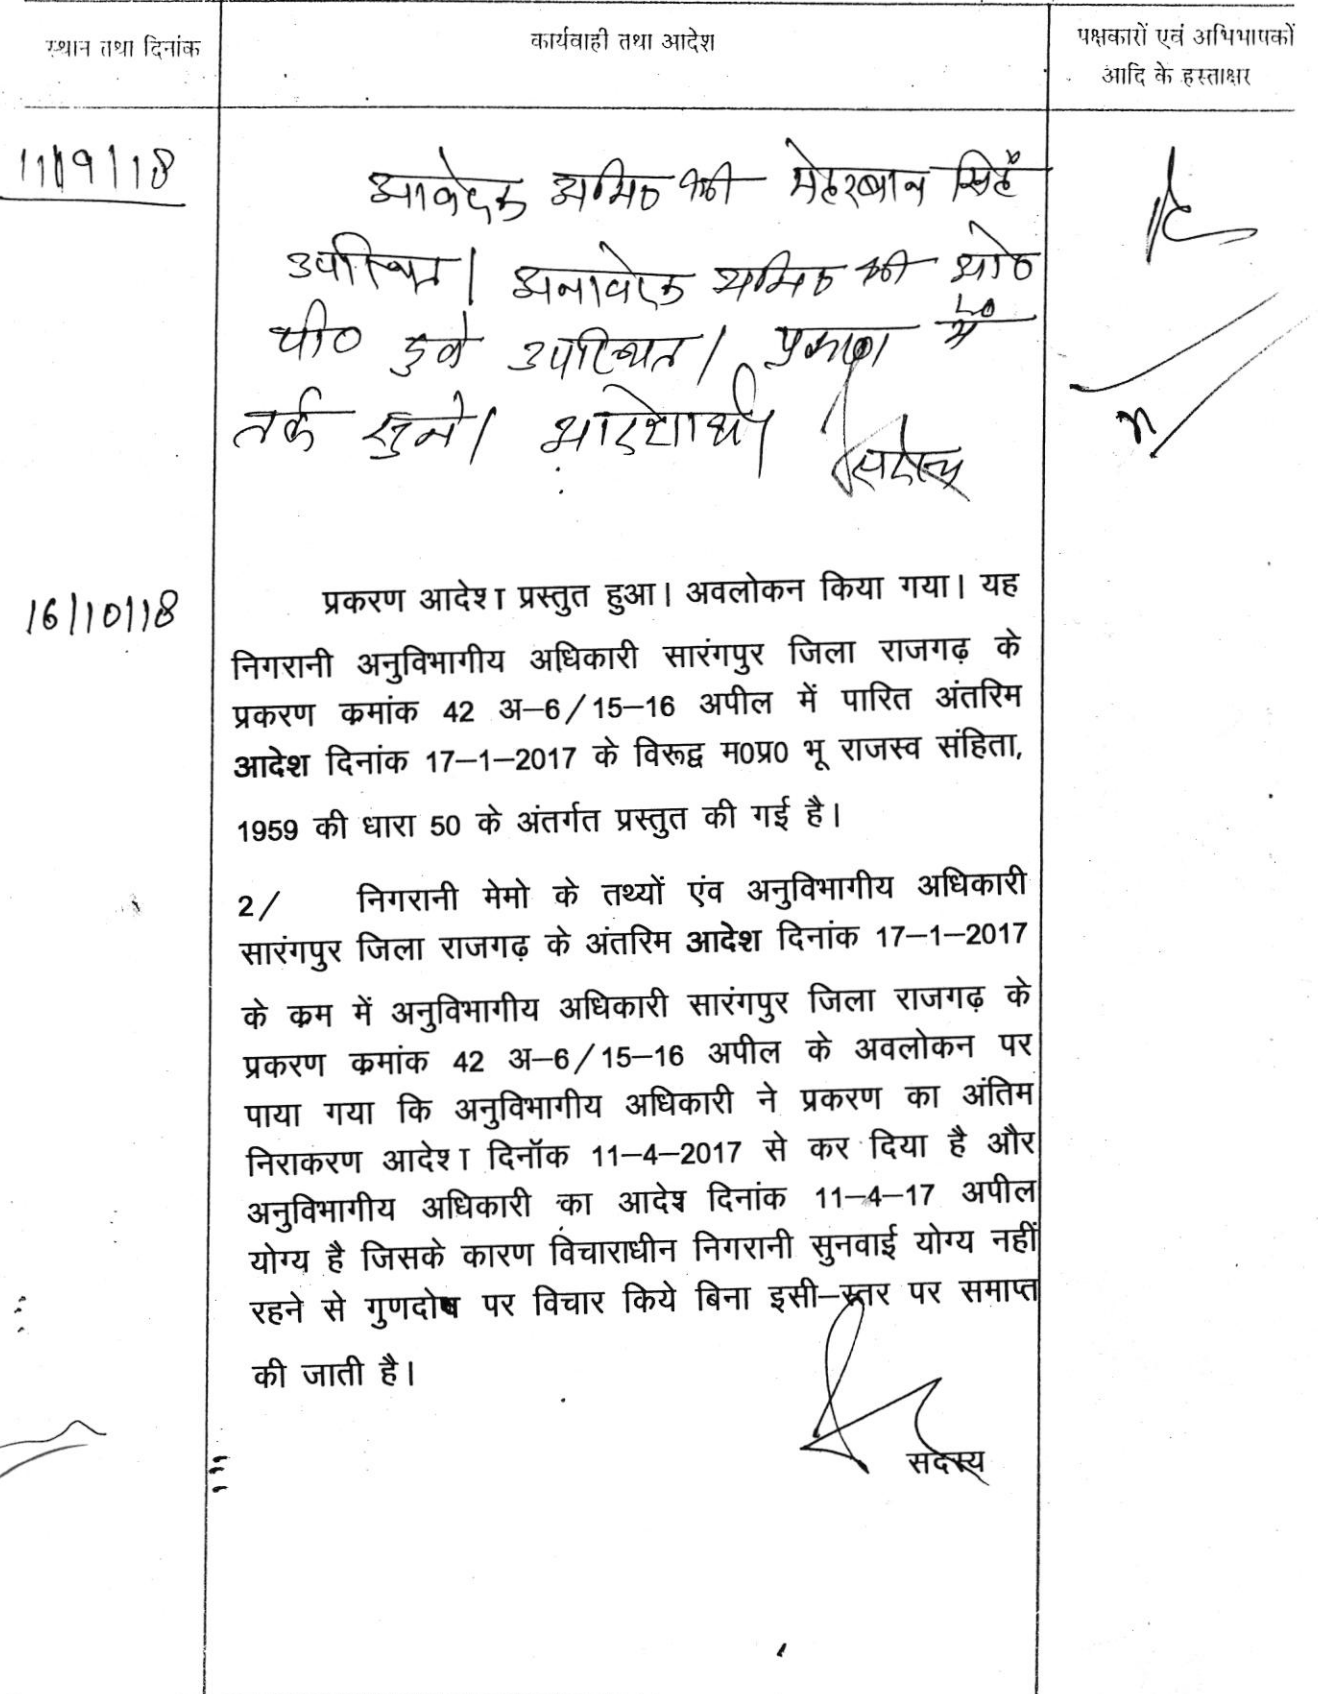 स्थान तथा दिनांक
कार्यवाही तथा आदेश
पक्षकारों एवं अभिभाषकों
आदि के हस्ताक्षर
11/9/18
आवेदक अभि० श्री मेहरबान सिंह
उपस्थित। अनावेदक अभि० श्री ओ०
पी० दुबे उपस्थित। प्रकरण में
तर्क सुने। आदेशार्थ।
सदस्य
16/10/18
प्रकरण आदेशा प्रस्तुत हुआ। अवलोकन किया गया। यह
निगरानी अनुविभागीय अधिकारी सारंगपुर जिला राजगढ़ के
प्रकरण कमांक 42 अ–6/15–16 अपील में पारित अंतरिम
आदेश दिनांक 17–1–2017 के विरूद्व म0प्र0 भू राजस्व संहिता,
1959 की धारा 50 के अंतर्गत प्रस्तुत की गई है।
2/ निगरानी मेमो के तथ्यों एंव अनुविभागीय अधिकारी
सारंगपुर जिला राजगढ़ के अंतरिम आदेश दिनांक 17–1–2017
के कम में अनुविभागीय अधिकारी सारंगपुर जिला राजगढ़ के
प्रकरण कमांक 42 अ–6/15–16 अपील के अवलोकन पर
पाया गया कि अनुविभागीय अधिकारी ने प्रकरण का अंतिम
निराकरण आदेशा दिनॉक 11–4–2017 से कर दिया है और
अनुविभागीय अधिकारी का आदेश दिनांक 11–4–17 अपील
योग्य है जिसके कारण विचाराधीन निगरानी सुनवाई योग्य नहीं
रहने से गुणदोष पर विचार किये बिना इसी–स्तर पर समाप्त
की जाती है।
सदस्य